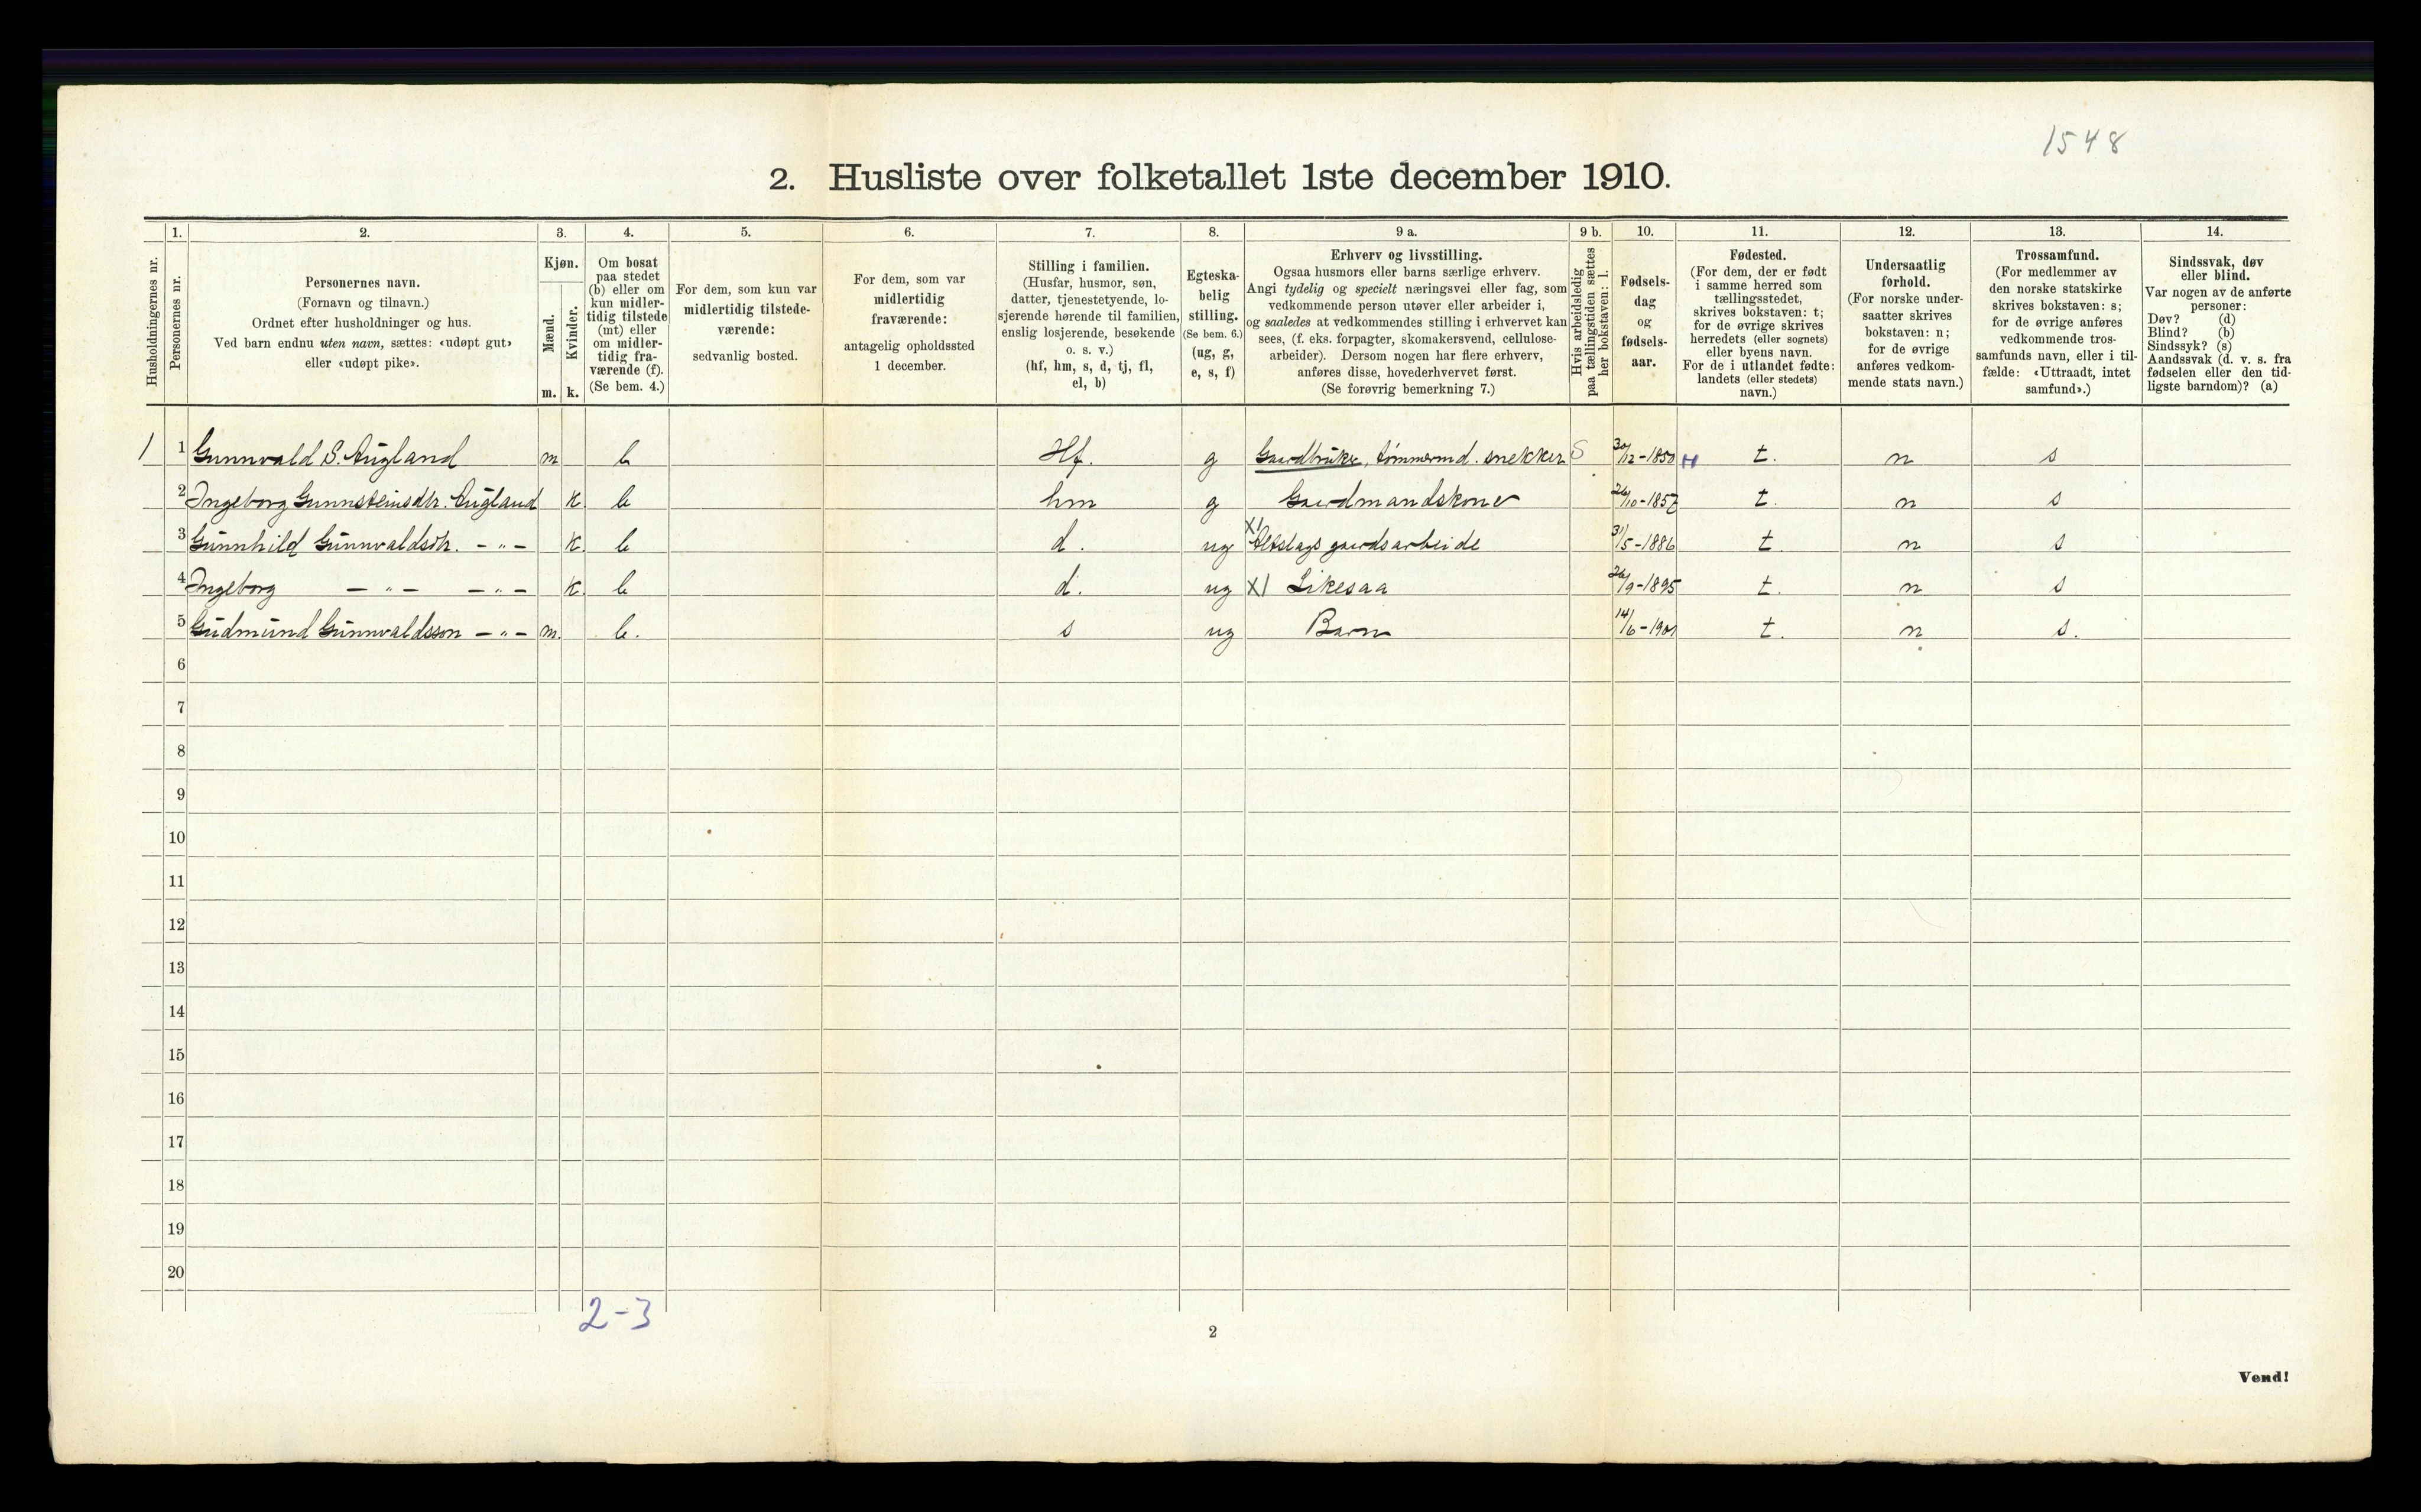 1548
2. Husliste over folketallet 1ste december 1910.
Husholdningernes nr.
1.
Personernes nr.
2.
Personernes navn.
(Fornavn og tilnavn.)
Ordnet efter husholdninger og hus.
Ved barn endnu uten navn, sættes: «udøpt gut»
eller «udøpt pike».
3.
Kjøn.
Mænd.
Kvinder.
m. k.
4.
Om bosat
paa stedet
(b) eller om
kun midler-
tidig tilstede
(mt) eller
om midler-
tidig fra-
værende (f).
(Se bem. 4.)
5.
For dem, som kun var
midlertidig tilstede-
værende:
sedvanlig bosted.
6.
For dem, som var
midlertidig
fraværende:
antagelig opholdssted
1 december.
7.
Stilling i familien.
(Husfar, husmor, søn,
datter, tjenestetyende, lo-
sjerende hørende til familien,
enslig losjerende, besøkende
o. s. v.)
(hf, hm, s, d, tj, fl,
el, b)
8.
Egteska-
belig
stilling.
(Se bem. 6.)
(ug, g,
e, s, f)
9 a.
Erhverv og livsstilling.
Ogsaa husmors eller barns særlige erhverv.
Angi tydelig og specielt næringsvei eller fag, som
vedkommende person utøver eller arbeider i,
og saaledes at vedkommendes stilling i erhvervet kan
sees, (f. eks. forpagter, skomakersvend, cellulose-
arbeider). Dersom nogen har flere erhverv,
anføres disse, hovederhvervet først.
(Se forøvrig bemerkning 7.)
9 b.
Hvis arbeidsledig
paa tællingstiden sættes
her bokstaven: l.
10.
Fødsels-
dag
og
fødsels-
aar.
11.
Fødested.
(For dem, der er født
i samme herred som
tællingsstedet,
skrives bokstaven: t;
for de øvrige skrives
herredets (eller sognets)
eller byens navn.
For de i utlandet fødte:
landets (eller stedets)
navn.)
12.
Undersaatlig
forhold.
(For norske under-
saatter skrives
bokstaven: n;
for de øvrige
anføres vedkom-
mende stats navn.)
13.
Trossamfund.
(For medlemmer av
den norske statskirke
skrives bokstaven: s;
for de øvrige anføres
vedkommende tros-
samfunds navn, eller i til-
fælde: «Uttraadt, intet
samfund».)
14.
Sindssvak, døv
eller blind.
Var nogen av de anførte
personer:
Døv? (d)
Blind? (b)
Sindssyk? (s)
Aandssvak (d. v. s. fra
fødselen eller den tid-
ligste barndom)? (a)
1 1 Gunnvald S. Augland m b Hf. g Gaardbruker, tømmermd. snekker S 30/12-1850 H t. n s
2 Ingeborg Gunnsteinsdtr. Augland k. b hm g Gaardmandskone 26/10-1857 t. n s
3 Gunnhild Gunnvaldsdtr. - " - k. b d. ug X1 Alslags gaardsarbeide 31/5-1886 t. n s
4 Ingeborg - " - - " - k. b d. ug X1 Likesaa 26/9-1895 t. n s
5 Gudmund Gunnvaldsson - " - m. b. s ug Barn 14/6-1901 t. n s.
6
7
8
9
10
11
12
13
14
15
16
17
18
19
20
2-3
2
Vend!